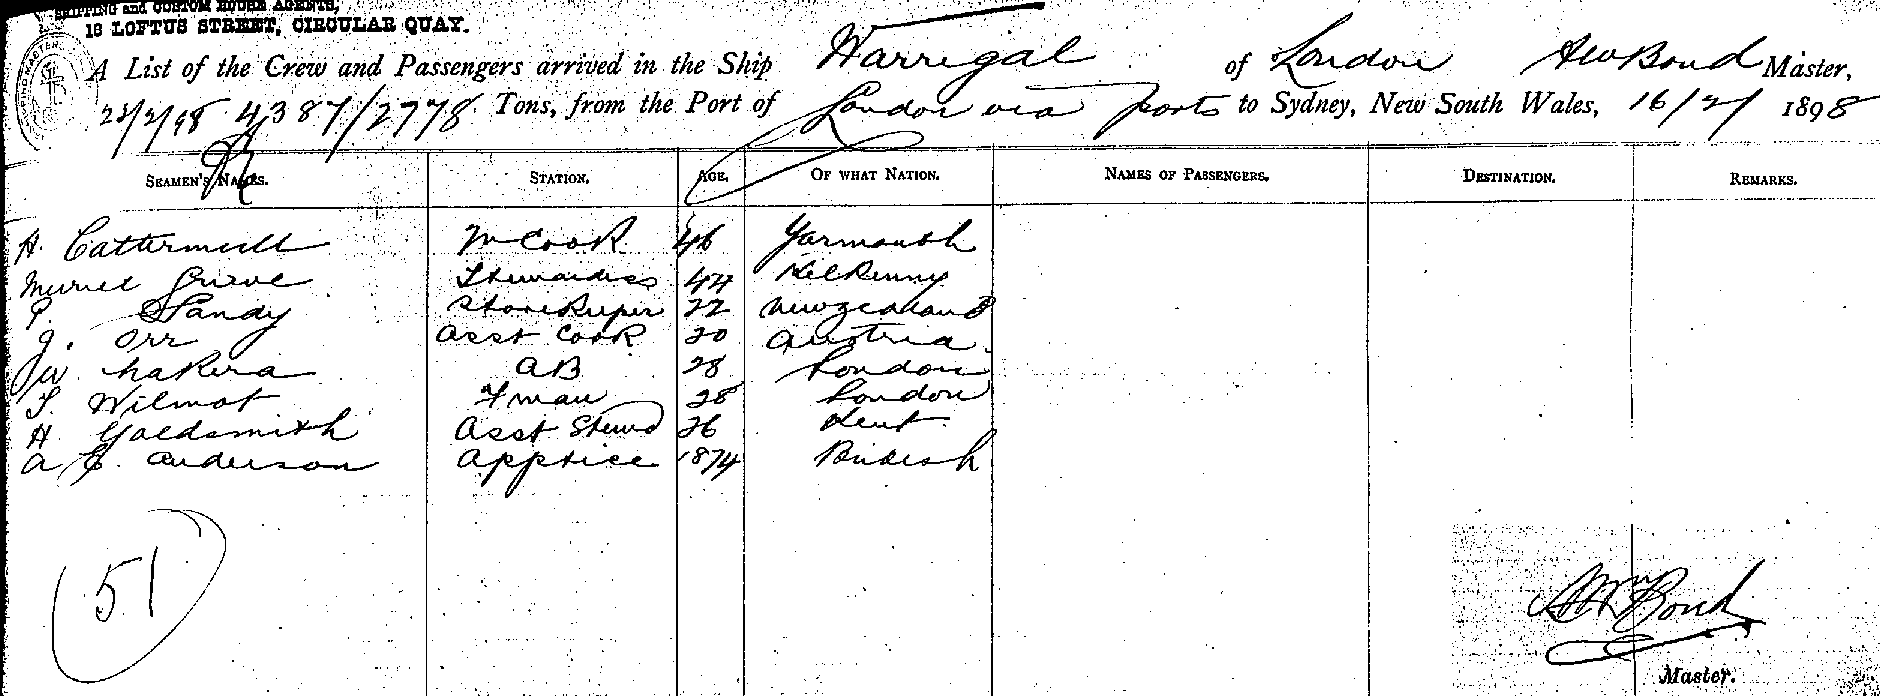 SHIPPING and CUSTOM HOUSE AGENTS,
18 LOFTUS STREET, CIRCULAR QUAY.
A List of the Crew and Passengers arrived in the Ship Warrigal of London A W Bond Master,
23/2/98 4387/2778 Tons, from the Port of London via ports to Sydney, New South Wales, 16/2/ 1898
SEAMEN'S NAMES. STATION. AGE. OF WHAT NATION. NAMES OF PASSENGERS. DESTINATION. REMARKS.
H. Cattermull M Cook 46 Yarmouth
Muriel Grieve Stewardess 44 Kilkenny
P. Sandy Storekeeper 22 New Zealand
J. Orr Asst Cook 20 Austria
AB 28 London
Wilmot Fman 28 London
H. Goldsmith Asst Stewd 26 Kent
A C. Anderson Apptice 1874 British
51
Bond
Master.